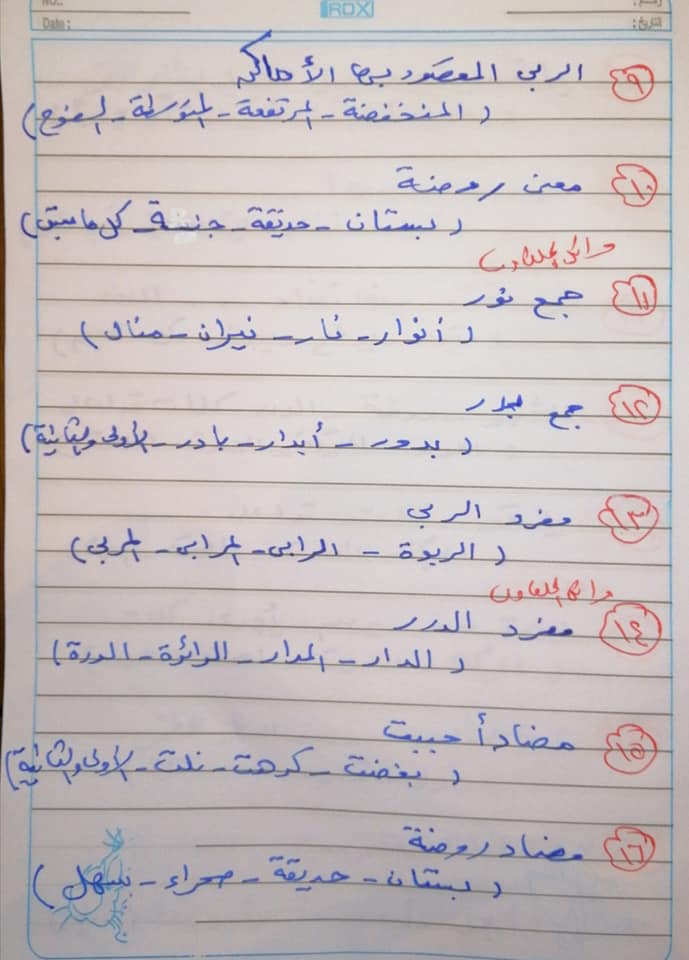 ROX
No.:
Date:
رقم:
التاريخ:
٩ الربى المقصود بها الأماكن
( المنخفضة - المرتفعة - المتوسطة - السفوح )
١٠ معنى روضة
( بستان - حديقة - جنينة - كل ما سبق )
١١ جمع نور
( أنوار - نار - نيران - منال )
١٢ جمع بدر
( بدور - أبدار - بادر - الأولى والثانية )
١٣ مفرد الربى
( الربوة - الرابى - المرابى - المربي )
١٤ مفرد الدرر
( الدار - المدار - الدائرة - الدرة )
١٥ مضاد أحببت
( بغضت - كرهت - نلت - الأولى والثانية )
١٦ مضاد روضة
( بستان - حديقة - صحراء - سهل )